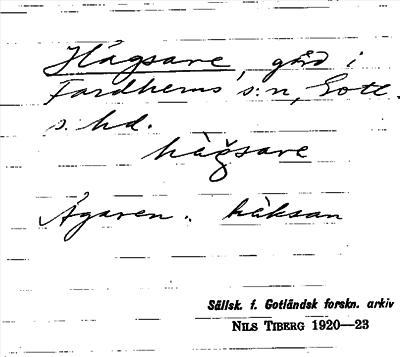 Hägsare, gård i
Fardhems s:n, Gotl.
s. hd.
hàg̃sare
Ägaren: häksan
Sällsk. f. Gotländsk forskn. arkiv
NILS TIBERG 1920—23